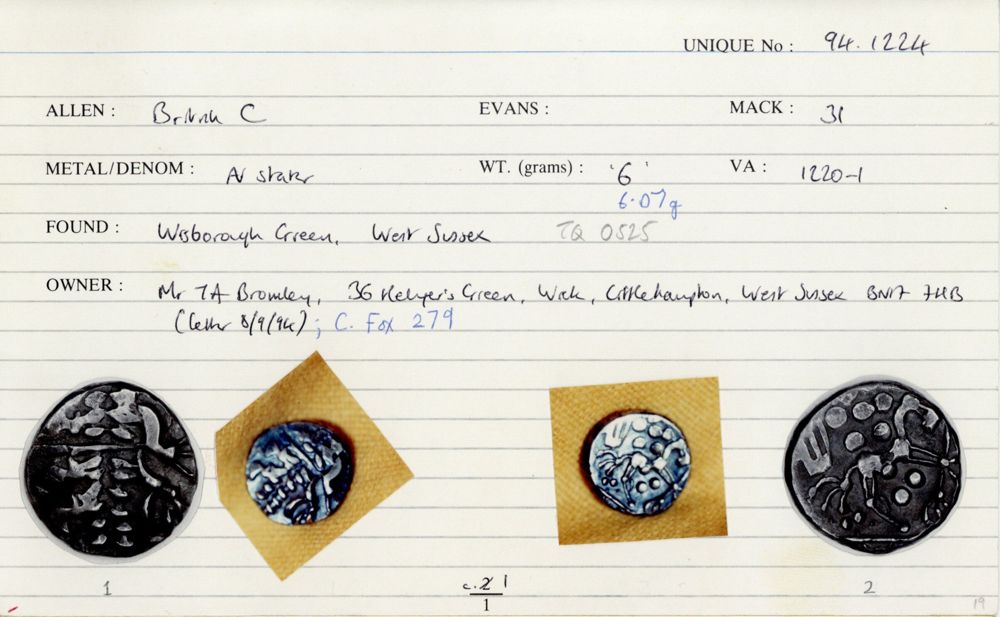 UNIQUE No : 94.1224
ALLEN : British C EVANS : MACK : 31
METAL/DENOM : AV stater WT. (grams) : '6' VA : 1220-1
6.07g
FOUND : Wisborough Green, West Sussex TQ 0525
OWNER : Mr TA Bromley, 36 Helyer's Green, Wick, Littlehampton, West Sussex BN17 7HB
(letter 8/9/94) ; C. Fox 279
1 c. 2 1 2
1
19